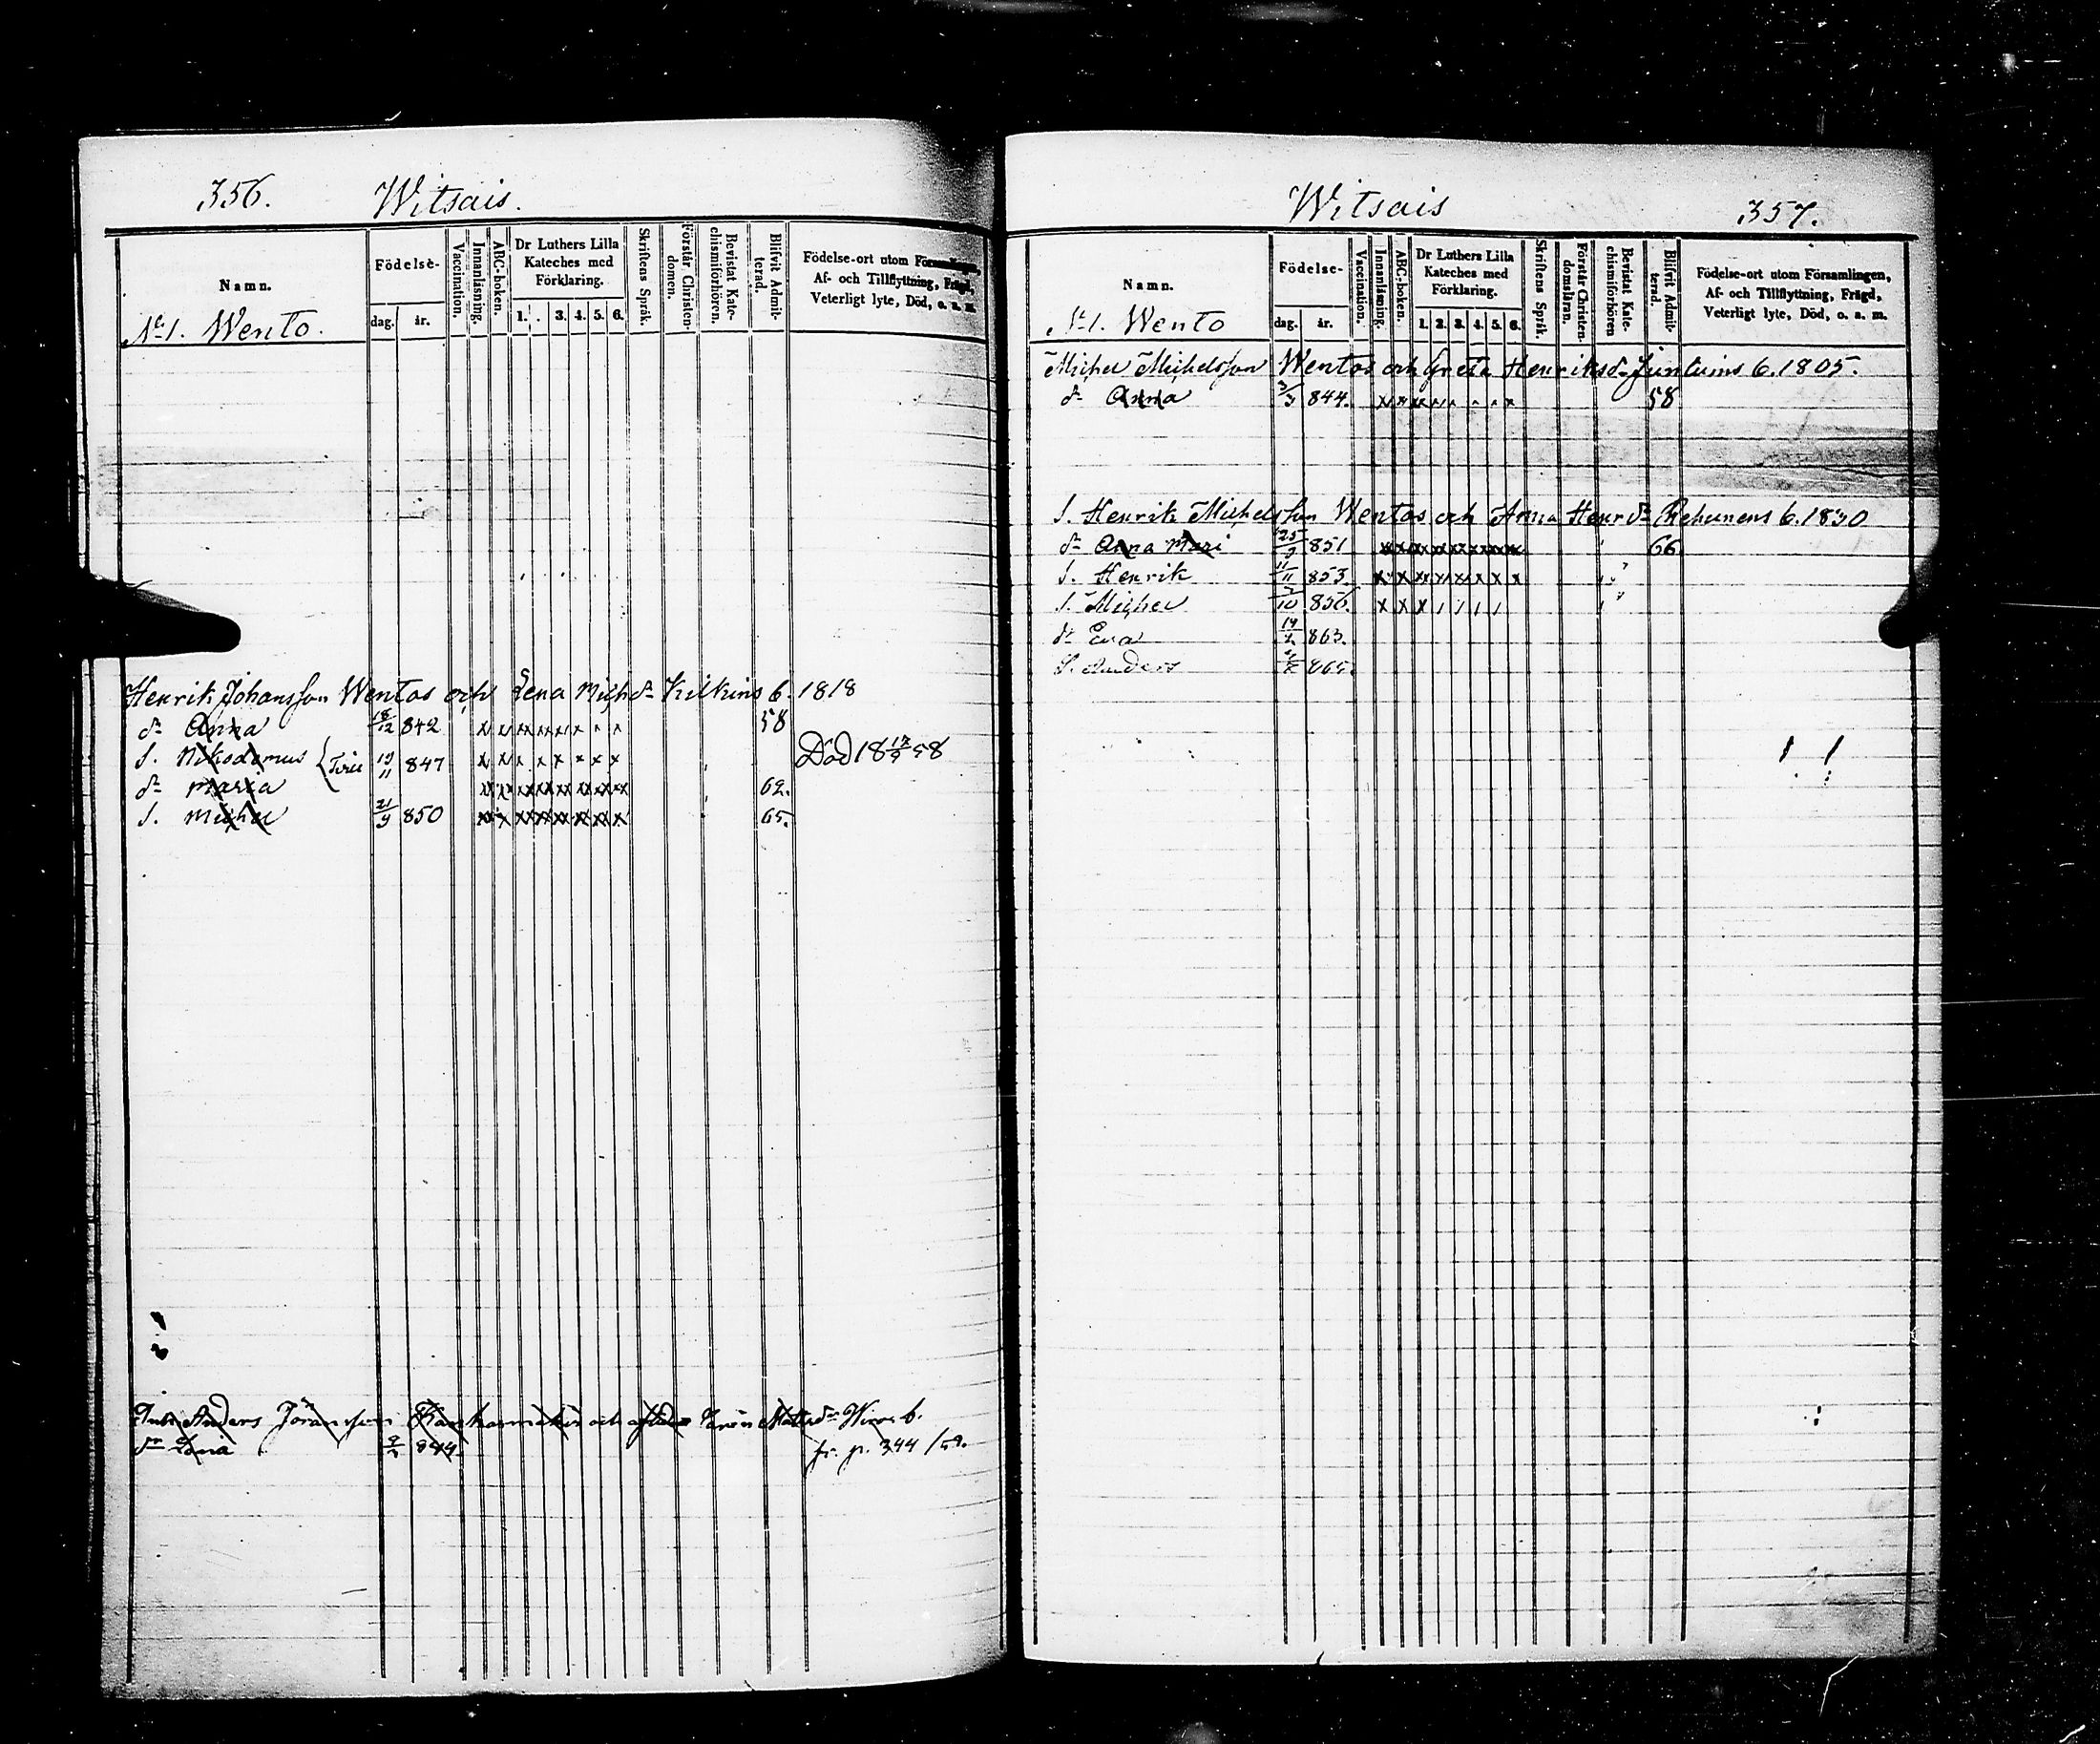 356. Witsais.
Namn.
Födelse-
dag. år.
Vaccination.
Innanläsning.
ABC-boken.
Dr Luthers Lilla
Kateches med
Förklaring.
1. 3. 4. 5. 6.
Skriftens Språk.
Förstår Christen-
domen.
Bevistat Kate-
chismiförhören.
Blifvit Admit-
terad.
Födelse-ort utom Församlingen,
Af- och Tillflyttning, Frägd,
Veterligt lyte, Död, o. a. m.
No 1. Wento.
Henrik Johansson Wentos och Lena Michdr Kilkins 6. 1818
dr Anna 18/12 842 58
S. Nikodemus 19/11 847 Död 18 17/9 58
dr Maria 62.
S. Michel 21/9 850 65.
Anders Jöransson och
dr Lena 844 fr. p. 344
Witsais 357.
Namn.
Födelse-
dag. år.
Vaccination.
Innanläsning.
ABC-boken.
Dr Luthers Lilla
Kateches med
Förklaring.
1. 2. 3. 4. 5. 6.
Skriftens Språk.
Förstår Christen-
domsläran.
Bevistat Kate-
chismiförhören
Blifvit Admit-
terad.
Födelse-ort utom Församlingen,
Af- och Tillflyttning, Frägd,
Veterligt lyte, Död, o. a. m.
No 1. Wento
Michel Michelsson Wentos och Greta Henriksdr Juntuins 6. 1805.
dr Anna 844. 58
S. Henrik Michelsson Wentos och Anna Henrdr Rehunens 6. 1830
dr Anna Mari 25/9 851 66
S. Henrik 11/11 853.
S. Michel 856.
dr Eva 863.
S. Anders 865.